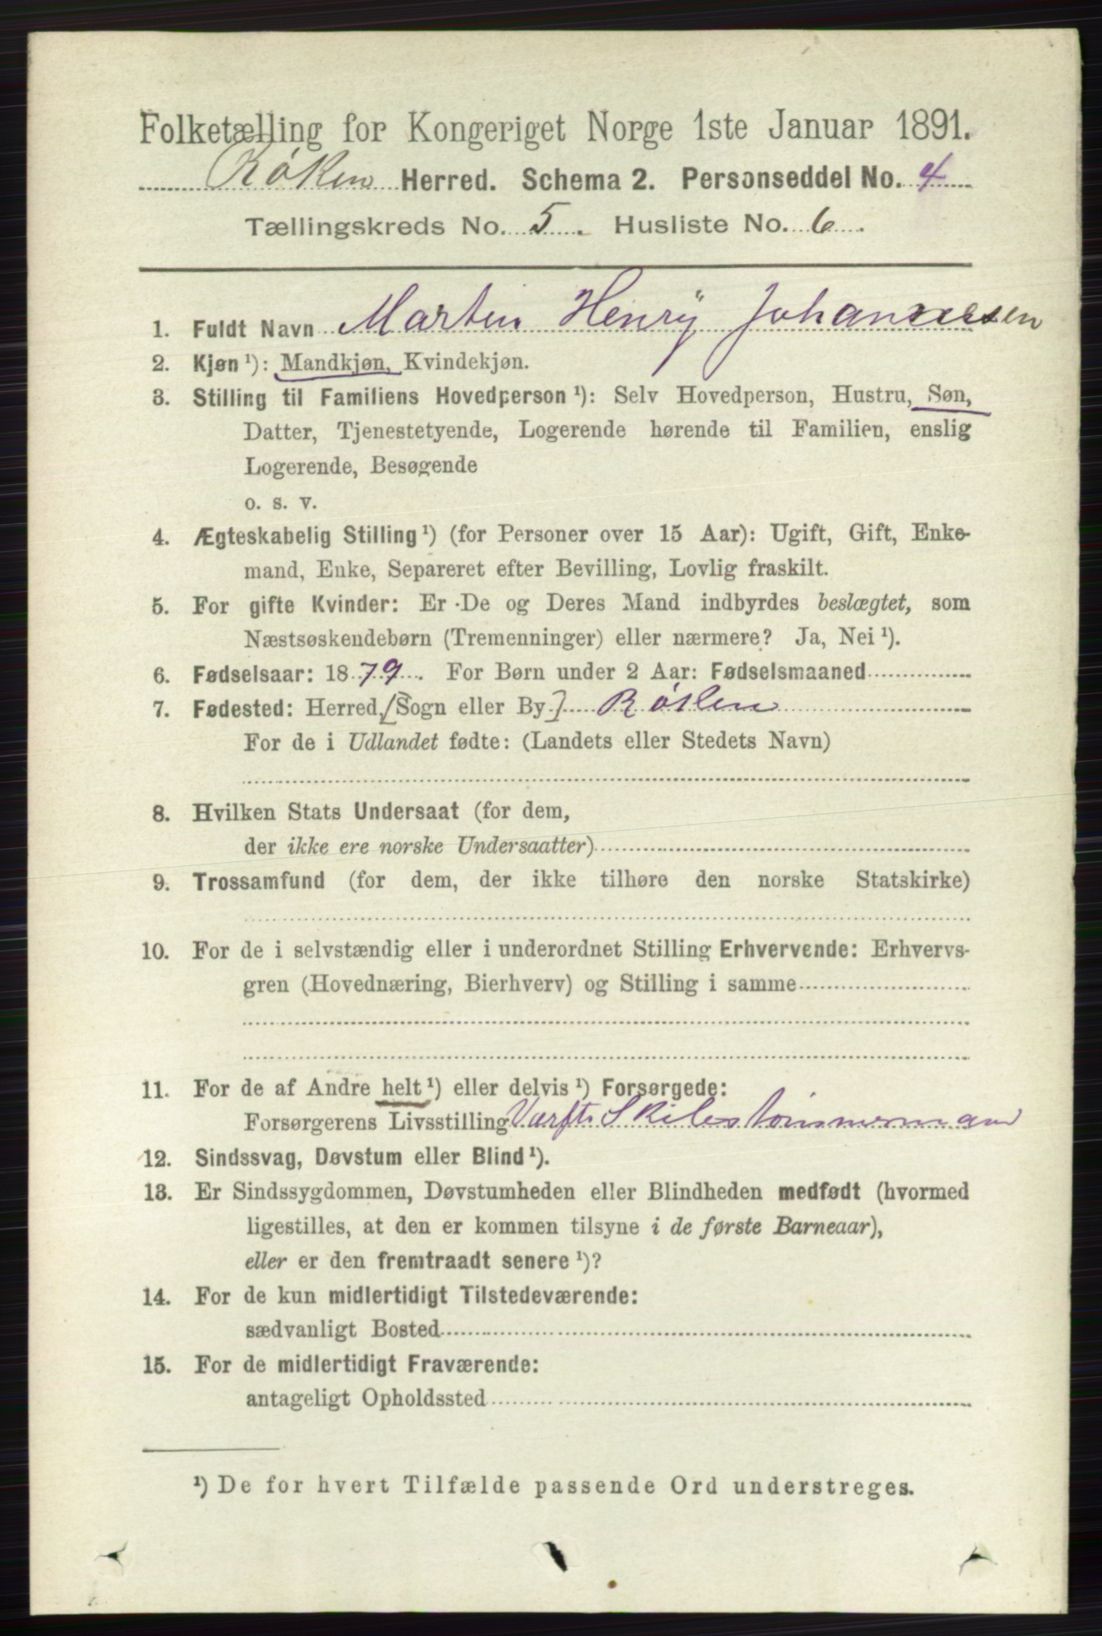 Folketælling for Kongeriget Norge 1ste Januar 1891.
Røken Herred. Schema 2. Personseddel No. 4
Tællingskreds No. 5. Husliste No. 6.
1. Fuldt Navn Martin Henry Johannessen
2. Kjøn ¹): Mandkjøn, Kvindekjøn.
3. Stilling til Familiens Hovedperson ¹): Selv Hovedperson, Hustru, Søn,
Datter, Tjenestetyende, Logerende hørende til Familien, enslig
Logerende, Besøgende
o. s. v.
4. Ægteskabelig Stilling ¹) (for Personer over 15 Aar): Ugift, Gift, Enke-
mand, Enke, Separeret efter Bevilling, Lovlig fraskilt.
5. For gifte Kvinder: Er De og Deres Mand indbyrdes beslægtet, som
Næstsøskendebørn (Tremenninger) eller nærmere? Ja, Nei ¹).
6. Fødselsaar: 1879. For Børn under 2 Aar: Fødselsmaaned
7. Fødested: Herred, [Sogn eller By] Røken
For de i Udlandet fødte: (Landets eller Stedets Navn)
8. Hvilken Stats Undersaat (for dem,
der ikke ere norske Undersaatter)
9. Trossamfund (for dem, der ikke tilhøre den norske Statskirke)
10. For de i selvstændig eller i underordnet Stilling Erhvervende: Erhvervs-
gren (Hovednæring, Bierhverv) og Stilling i samme
11. For de af Andre helt ¹) eller delvis ¹) Forsørgede:
Forsørgerens Livsstilling Værfts Skibstømmermand
12. Sindssvag, Døvstum eller Blind ¹).
13. Er Sindssygdommen, Døvstumheden eller Blindheden medfødt (hvormed
ligestilles, at den er kommen tilsyne i de første Barneaar),
eller er den fremtraadt senere ¹)?
14. For de kun midlertidigt Tilstedeværende:
sædvanligt Bosted
15. For de midlertidigt Fraværende:
antageligt Opholdssted
¹) De for hvert Tilfælde passende Ord understreges.